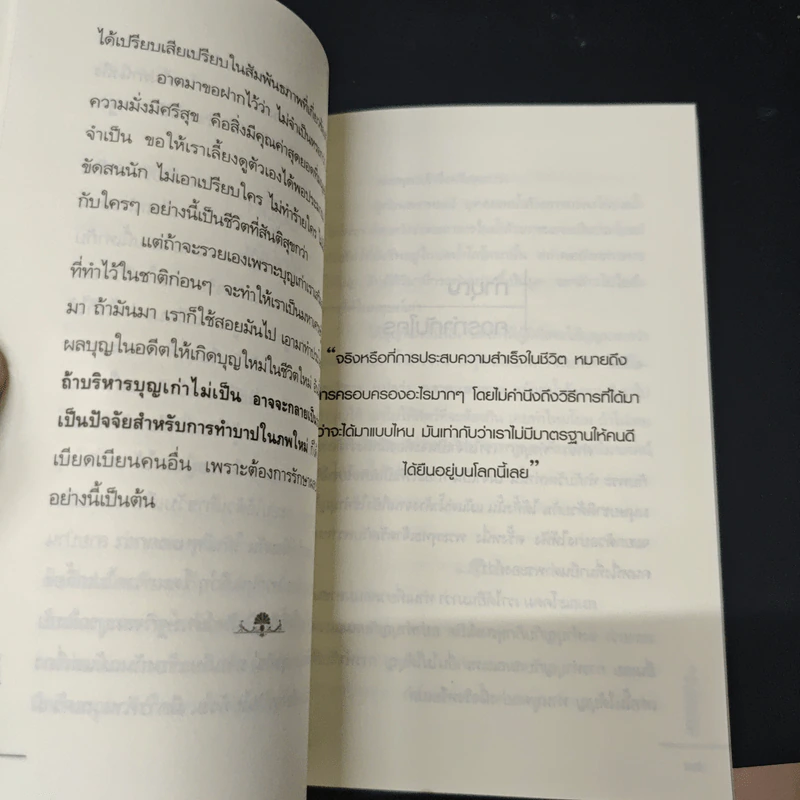 ได้เปรียบเสียเปรียบในสัมพันธภาพที่เกี่ยว
อาตมาขอฝากไว้ว่า ไม่จำเป็น
ความมั่งมีศรีสุข คือสิ่งมีคุณค่าสุดยอด
จำเป็น ขอให้เราเลี้ยงดูตัวเองได้พอประมาณ
ขัดสนนัก ไม่เอาเปรียบใคร ไม่ทำร้ายใคร
กับใครๆ อย่างนี้เป็นชีวิตที่สันติสุขกว่า
แต่ถ้าจะรวยเองเพราะบุญเก่า
ที่ทำไว้ในชาติก่อนๆ จะทำให้เราเป็น
มา ถ้ามันมา เราก็ใช้สอยมันไป เอามา
ผลบุญในอดีตให้เกิดบุญใหม่ในชีวิตใหม่
ถ้าบริหารบุญเก่าไม่เป็น อาจจะกลายเป็น
เป็นปัจจัยสำหรับการทำบาปในภพใหม่
เบียดเบียนคนอื่น เพราะต้องการรักษา
อย่างนี้เป็นต้น
“จริงหรือที่การประสบความสำเร็จในชีวิต หมายถึง
การครอบครองอะไรมากๆ โดยไม่คำนึงถึงวิธีการที่ได้มา
ว่าจะได้มาแบบไหน มันเท่ากับว่าเราไม่มีมาตรฐานให้คนดี
ได้ยืนอยู่บนโลกนี้เลย”